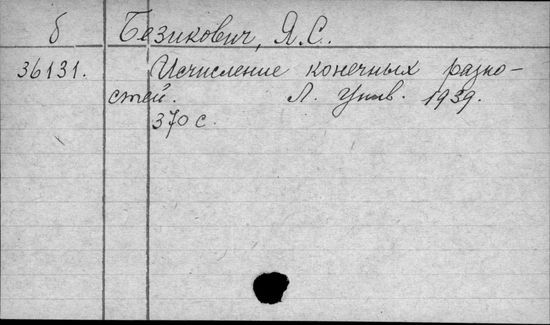 б Безикович, Я.С.
36131. Исчисление конечных разно-
стей. Л. Унив. 1939.
370 с.